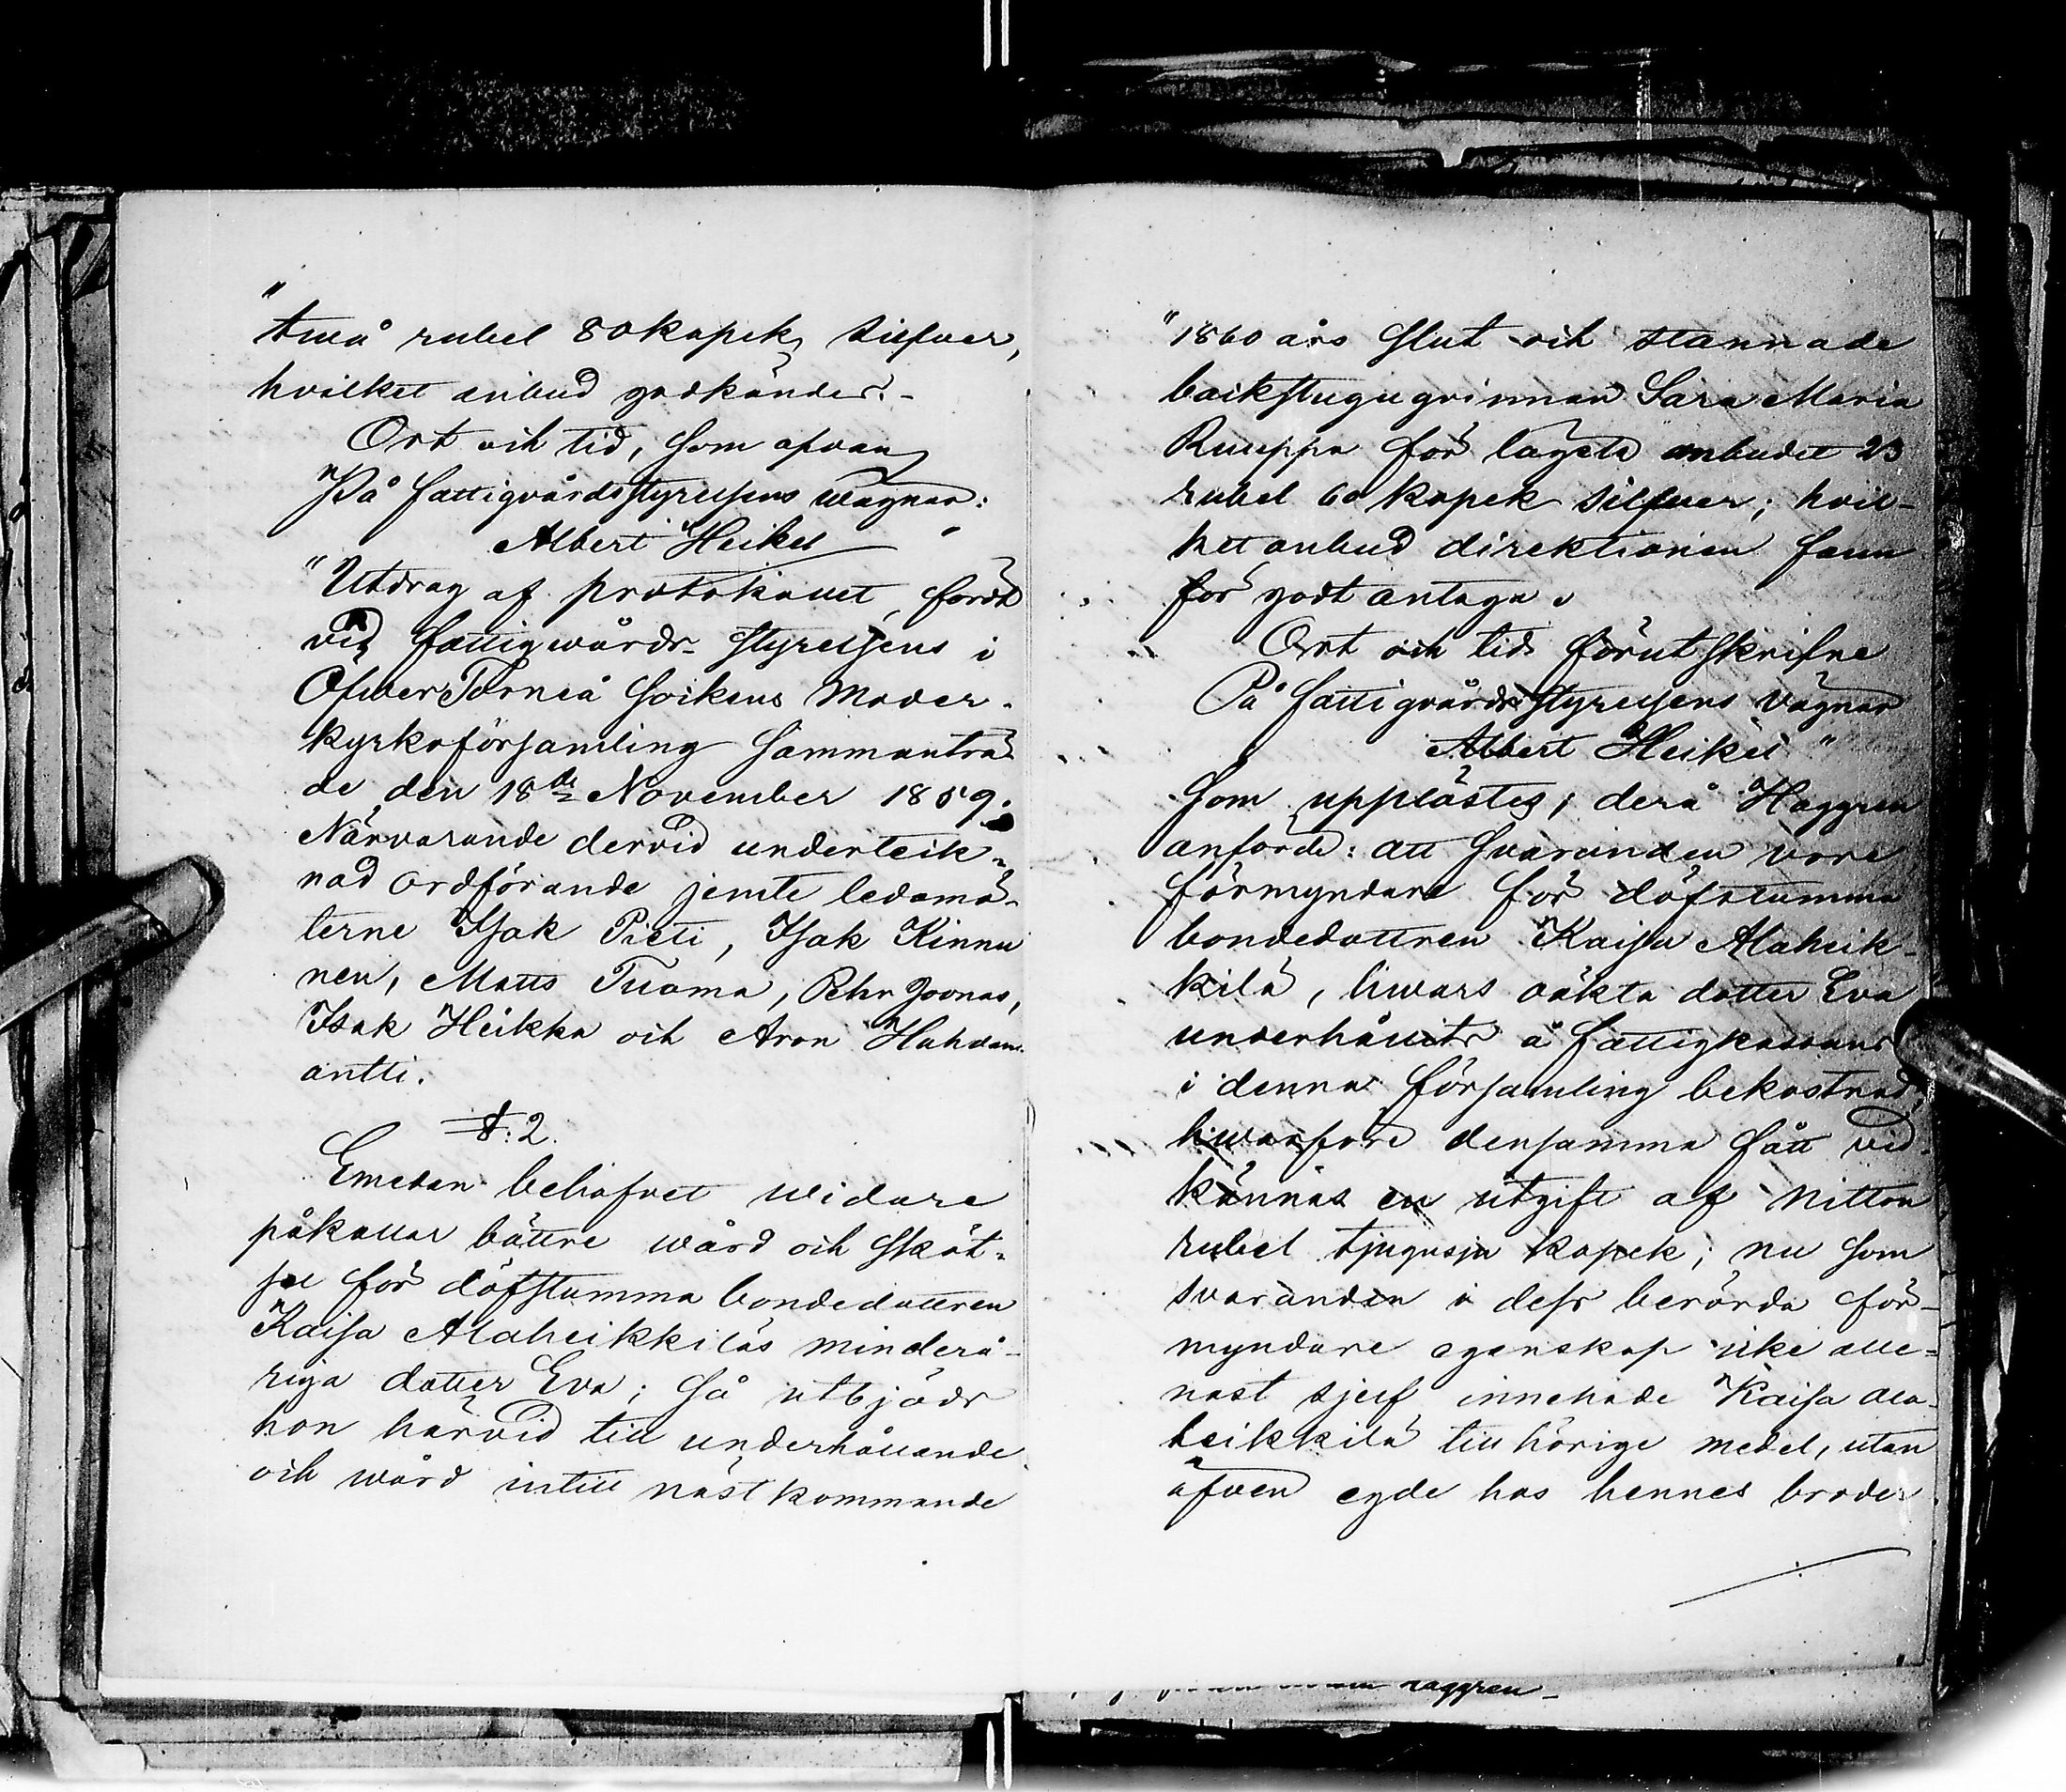 "
twå rubel 80 kopek silfver,
hvilket anbud godkändes.-
Ort och tid, som ofvan
På fattigvårdsstyrelsens wägnar:
Albert Heikel "
"Utdrag af protokollet, fördt
vid fattigwårds-styrelsens i
Ofwer Torneå Sockens Moder-
kyrkoförsamling sammanträ
de den 18de November 1859.
Närvarande dervid underteck-
nad Ordförande jemte ledamö-
terne Isak Pieti, Isak Kinnu
nen, Matts Tuoma, Pehr Joonas,
Isak Heikka och Aron Hahdan-
antti.
§:2.
Emedan behofvet widare
påkallar bättre wård och sköt-
sel för döfstumma bondedottren
Kaisa Alaheikkiläs minderå-
riga dotter Eva; så utbjöds
hon härvid till underhållande
och wård intill nästkommande
"1860 års slut och stannade
backstuguqvinnan Sara Maria
Rueppa för lägsta anbudet 23
rubel 60 kopek silfver; hvil-
ket anbud direktionen fann
för godt antaga.
Ort och tid förutskrifne
På fattigvårdsstyrelsens vägnar
Albert Heikel "
Som upplästes; derå Häggren
anförde: att Svaranden vore
förmyndare för döfstumma
bondedottren Kaisa Alaheik-
kilä, hwars oäkta dotter Eva
underhållits å fattigkassans
i denna församling bekostnad,
hwarföre densamma fått vid-
kännas en utgift af nitton
rubel tjugusju kopek; nu som
svaranden i dess berörda för-
myndare egenskap icke alle-
nast sjelf innehade Kaisa Ala-
heikkilä tillhörige medel, utan
äfven egde hos hennes broder
raggren